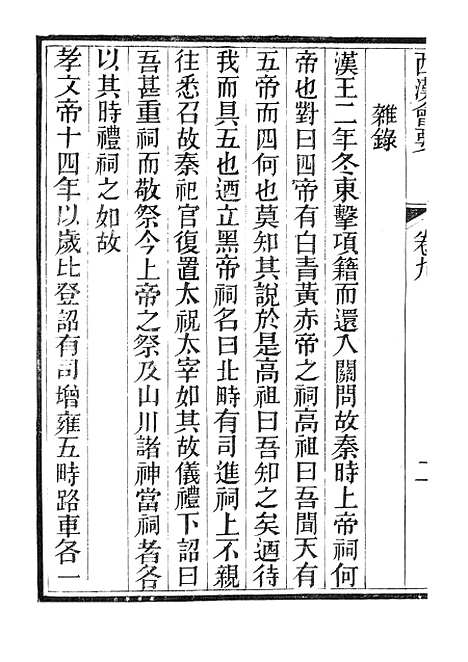 西漢會要
卷九
二
雜錄
漢王二年冬東擊項籍而還入關問故秦時上帝祠何
帝也對曰四帝有白青黃赤帝之祠高祖曰吾聞天有
五帝而四何也莫知其說於是高祖曰吾知之矣迺待
我而具五也迺立黑帝祠名曰北畤有司進祠上不親
往悉召故秦祀官復置太祝太宰如其故儀禮下詔曰
吾甚重祠而敬祭今上帝之祭及山川諸神當祠者各
以其時禮祠之如故
孝文帝十四年以歲比登詔有司增雍五畤路車各一